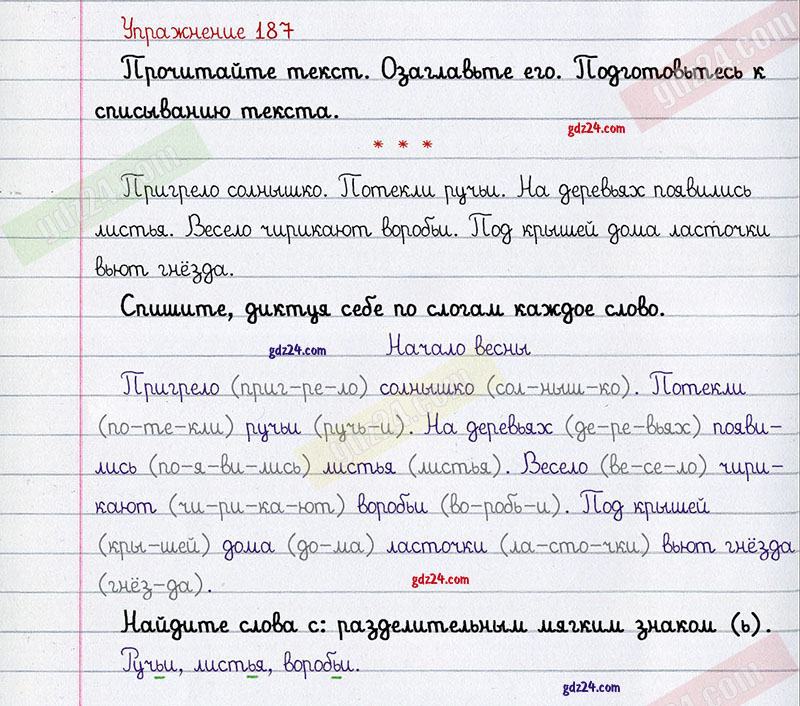 Упражнение 187
gdz24.com
Прочитайте текст. Озаглавьте его. Подготовьтесь к
списыванию текста.
gdz24.com
* * *
gdz24.com
Пригрело солнышко. Потекли ручьи. На деревьях появились
листья. Весело чирикают воробьи. Под крышей дома ласточки
вьют гнёзда.
Спишите, диктуя себе по слогам каждое слово.
gdz24.com
Начало весны
Пригрело (приг-ре-ло) солнышко (сол-ныш-ко). Потекли
(по-те-кли) ручьи (ручь-и). На деревьях (де-ре-вьях) появи-
gdz24.com
лись (по-я-ви-лись) листья (листья). Весело (ве-се-ло) чири-
кают (чи-ри-ка-ют) воробьи (во-робь-и). Под крышей
(кры-шей) дома (до-ма) ласточки (ла-сто-чки) вьют гнёзда
(гнёз-да).
gdz24.com
Найдите слова с: разделительным мягким знаком (ь).
Ручьи, листья, воробьи.
gdz24.com